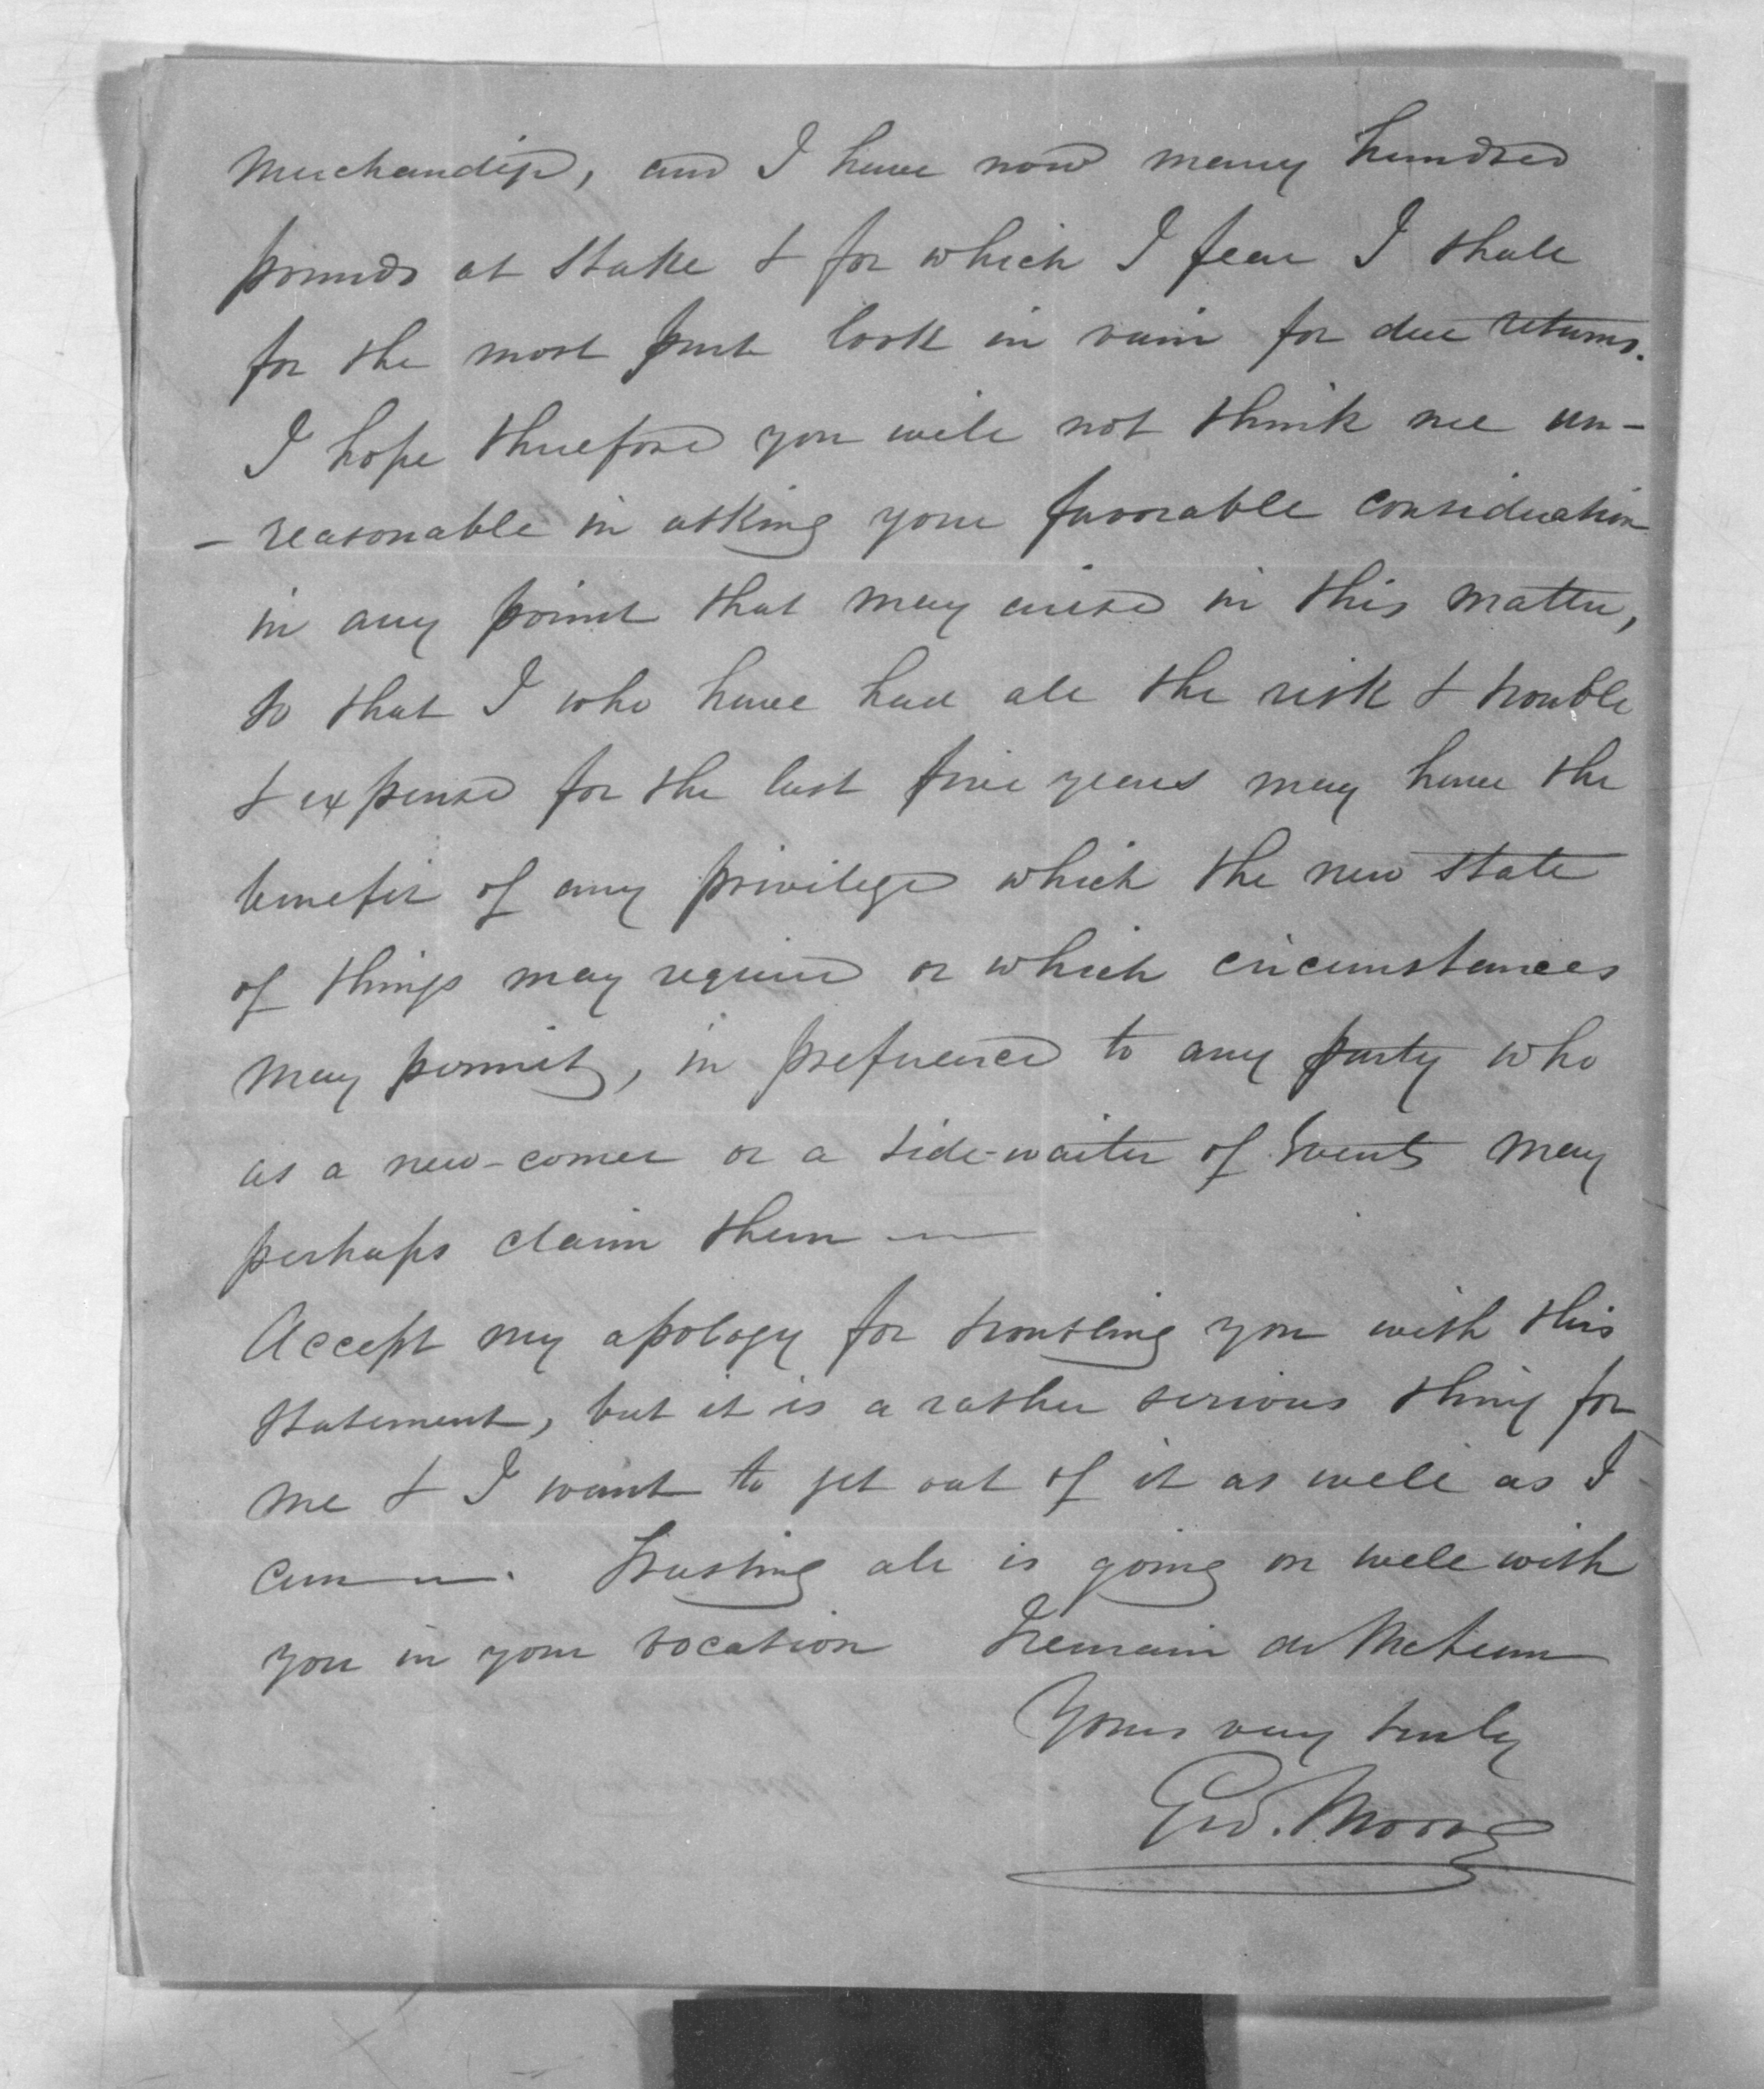 Merchandise, and I have now many hundred
pounds at stake & for which I fear I shall
for the most part look in vain for due returns.
I hope therefore you will not think me un-
- reasonable in asking your favorable consideration
in any point that may arise in this matter,
so that I who have had all the risk & trouble
& expense for the last five years may have the
benefit of any privilege which the new state
of things may require or which circumstances
may permit, in preference to any party who
as a new-comer or a side-waiter of Events may
perhaps claim them
Accept my apology for troubling you with this
statement, but it is a rather serious thing for
me & I want to get out of it as well as I
can. Trusting all is going on well with
you in your vocation I remain dr McLean
Yours very truly
Geo. Moore